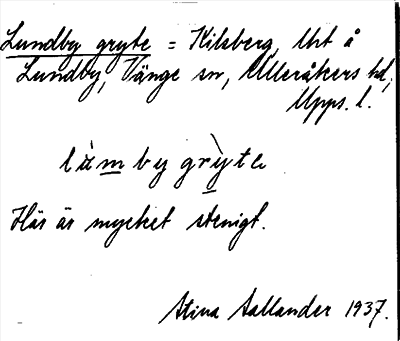 Lundby gryte = Kilsberg, Utt å
Lundby, Vänge sn, Ulleråkers hd,
Upps. l.
lùmby grỳte
Här är mycket stenigt.
Stina Sallander 1937.